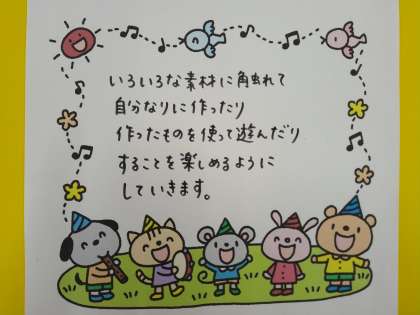 いろいろな素材に触れて
自分なりに作ったり
作ったものを使って遊んだり
することを楽しめるように
していきます。